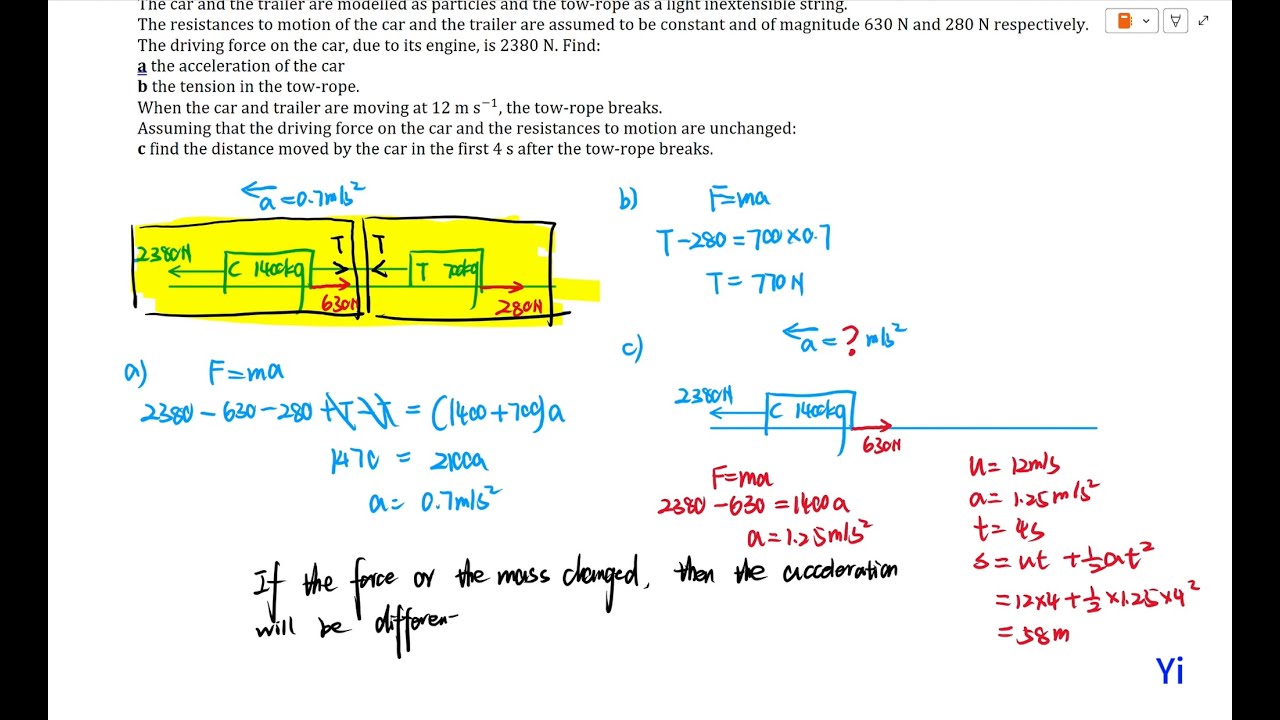 The car and the trailer are modelled as particles and the tow-rope as a light inextensible string.
The resistances to motion of the car and the trailer are assumed to be constant and of magnitude 630 N and 280 N respectively.
The driving force on the car, due to its engine, is 2380 N. Find:
a the acceleration of the car
b the tension in the tow-rope.
When the car and trailer are moving at 12 m s⁻¹, the tow-rope breaks.
Assuming that the driving force on the car and the resistances to motion are unchanged:
c find the distance moved by the car in the first 4 s after the tow-rope breaks.
a = 0.7m/s²
2380N
C 1400kg
T
T
T 700kg
630N
280N
a) F=ma
2380 - 630 - 280 + T - T = (1400 + 700)a
1470 = 2100a
a = 0.7m/s²
b) F=ma
T - 280 = 700 × 0.7
T = 770N
c)
a = ? m/s²
2380N
C 1400kg
630N
F=ma
2380 - 630 = 1400a
a = 1.25m/s²
u = 12m/s
a = 1.25m/s²
t = 4s
s = ut + ½at²
= 12×4 + ½×1.25×4²
= 58m
If the force or the mass changed, then the acceleration
will be differen
Yi